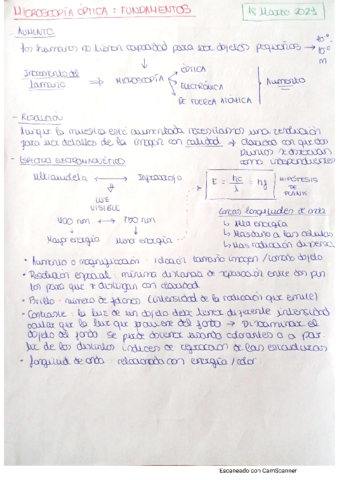 MICROSCOPÍA ÓPTICA: FUNDAMENTOS
Marzo 2021
- AUMENTO
los humanos no tienen capacidad para ver objetos pequeños →
Incremento del tamaño ⇒ MICROSCOPÍA
ÓPTICA
ELECTRÓNICA
DE FUERZA ATÓMICA
Aumento
- RESOLUCIÓN
Aunque la muestra esté aumentada necesitamos una resolución
para ver detalles de la imagen con calidad → claridad con que dos
puntos se observan
como independientes
- ESPECTRO ELECTROMAGNÉTICO
Ultravioleta ← → Infrarrojo
LUZ
VISIBLE
400 nm ← → 750 nm
Mayor energía Menor energía
E = hc/λ = hf
HIPÓTESIS
DE
PLANK
Cortas longitudes de onda
↳ Alta energía
↳ Más daño a las células
↳ Más radiación dispersa
• Aumento o magnificación: relación tamaño imagen / tamaño objeto
• Resolución espacial: mínima distancia de separación entre dos pun
tos para que se distingan con claridad
• Brillo: número de fotones (intensidad de la radiación que emite)
• Contraste: la luz de un objeto debe tener diferente intensidad
que la luz que proviene del fondo → Discriminar el
objeto del fondo. Se puede obtener usando colorantes o a par
tir de los distintos índices de refracción de las estructuras
• longitud de onda: relacionada con energía/color
Escaneado con CamScanner